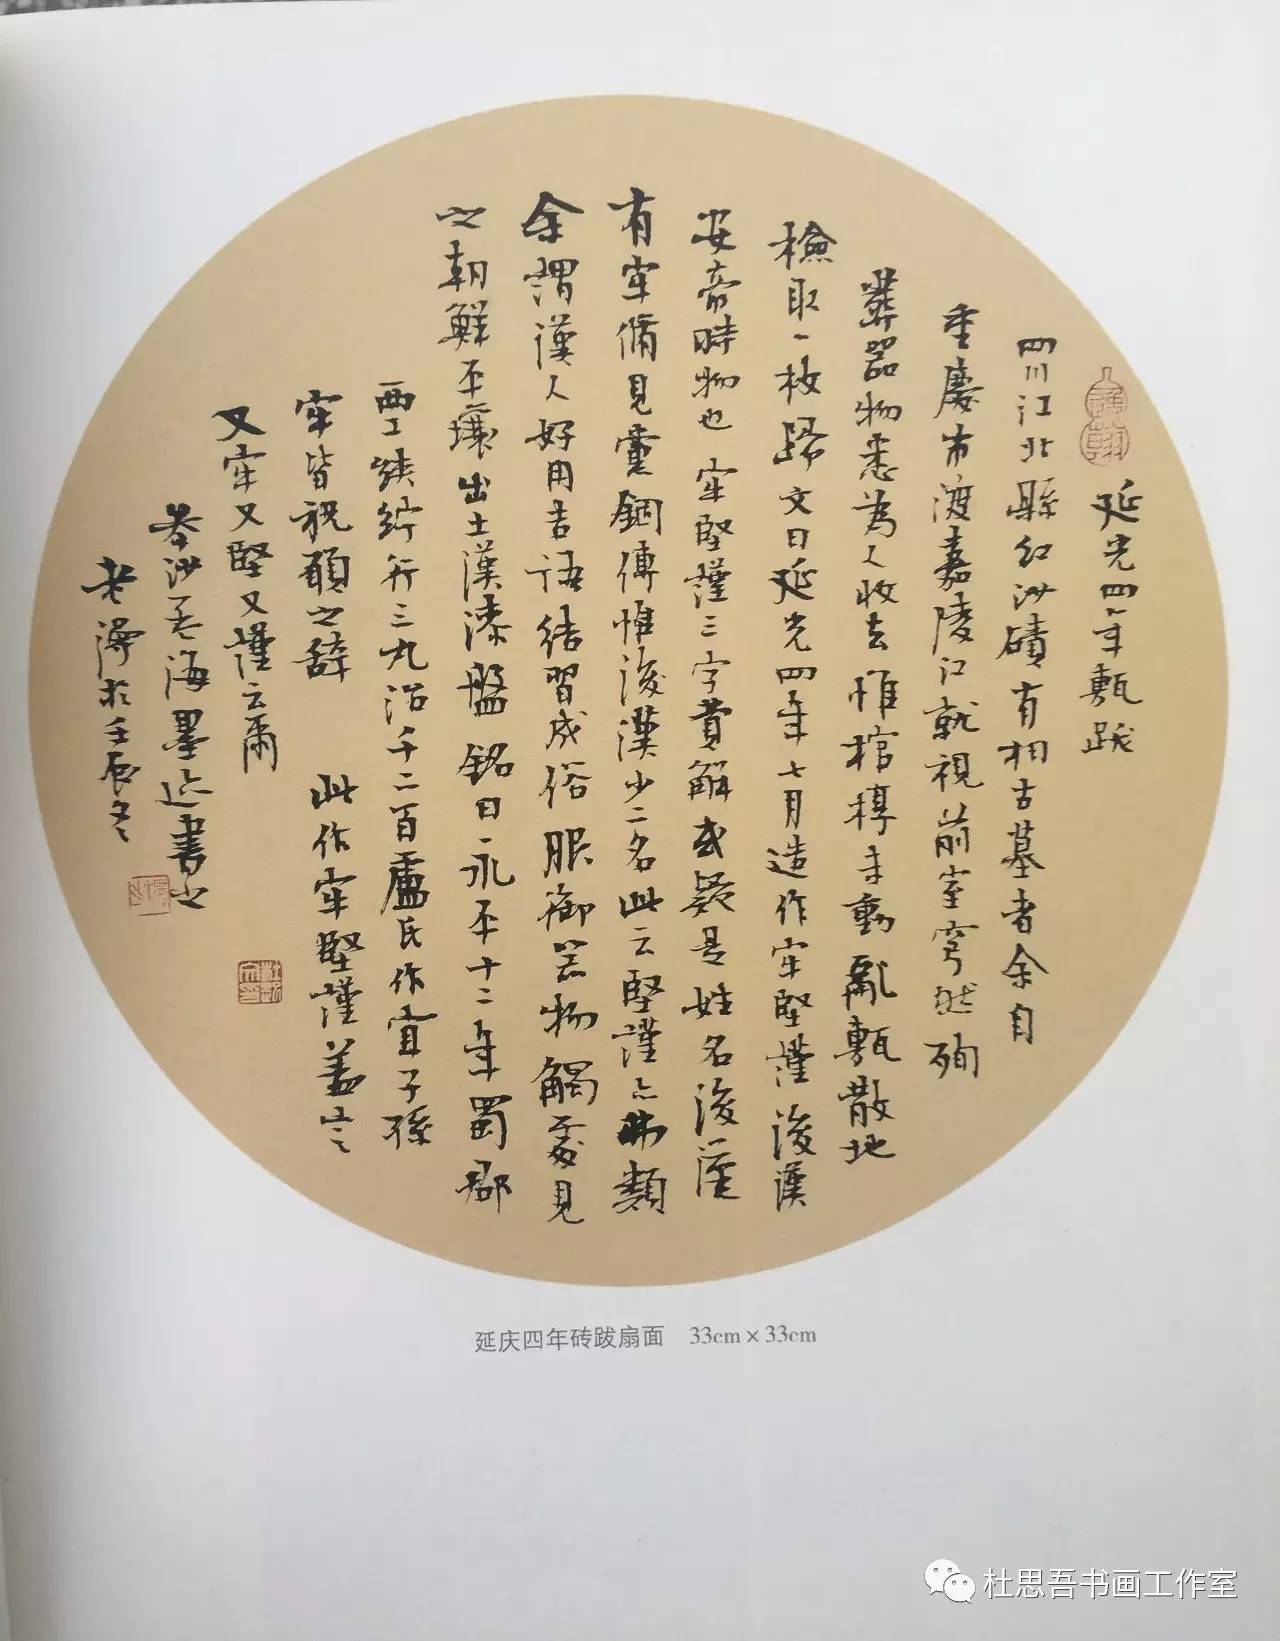 延光四年甎跋
四川江北縣紅沙磧有相古墓者余自
重慶市渡嘉陵江就視前室穹然殉
葬器物悉為人收去惟棺槨未動亂甎散地
檢取一枚歸文曰延光四年七月造作牢堅謹後漢
安帝時物也牢堅謹三字費解或疑是姓名後漢
有牢脩見黨錮傳惟後漢少二名此云堅謹亦弗類
余謂漢人好用吉語結習成俗服御器物觸處見
之朝鮮平壤出土漢漆盤銘曰永平十二年蜀郡
西工綊紵行三丸治千二百盧氏作宜子孫
牢皆祝願之辭 此作牢堅謹蓋言
又牢又堅又謹云爾
沙孟海墨迹書之
於壬辰冬
延庆四年砖跋扇面 33cm×33cm
杜思吾书画工作室